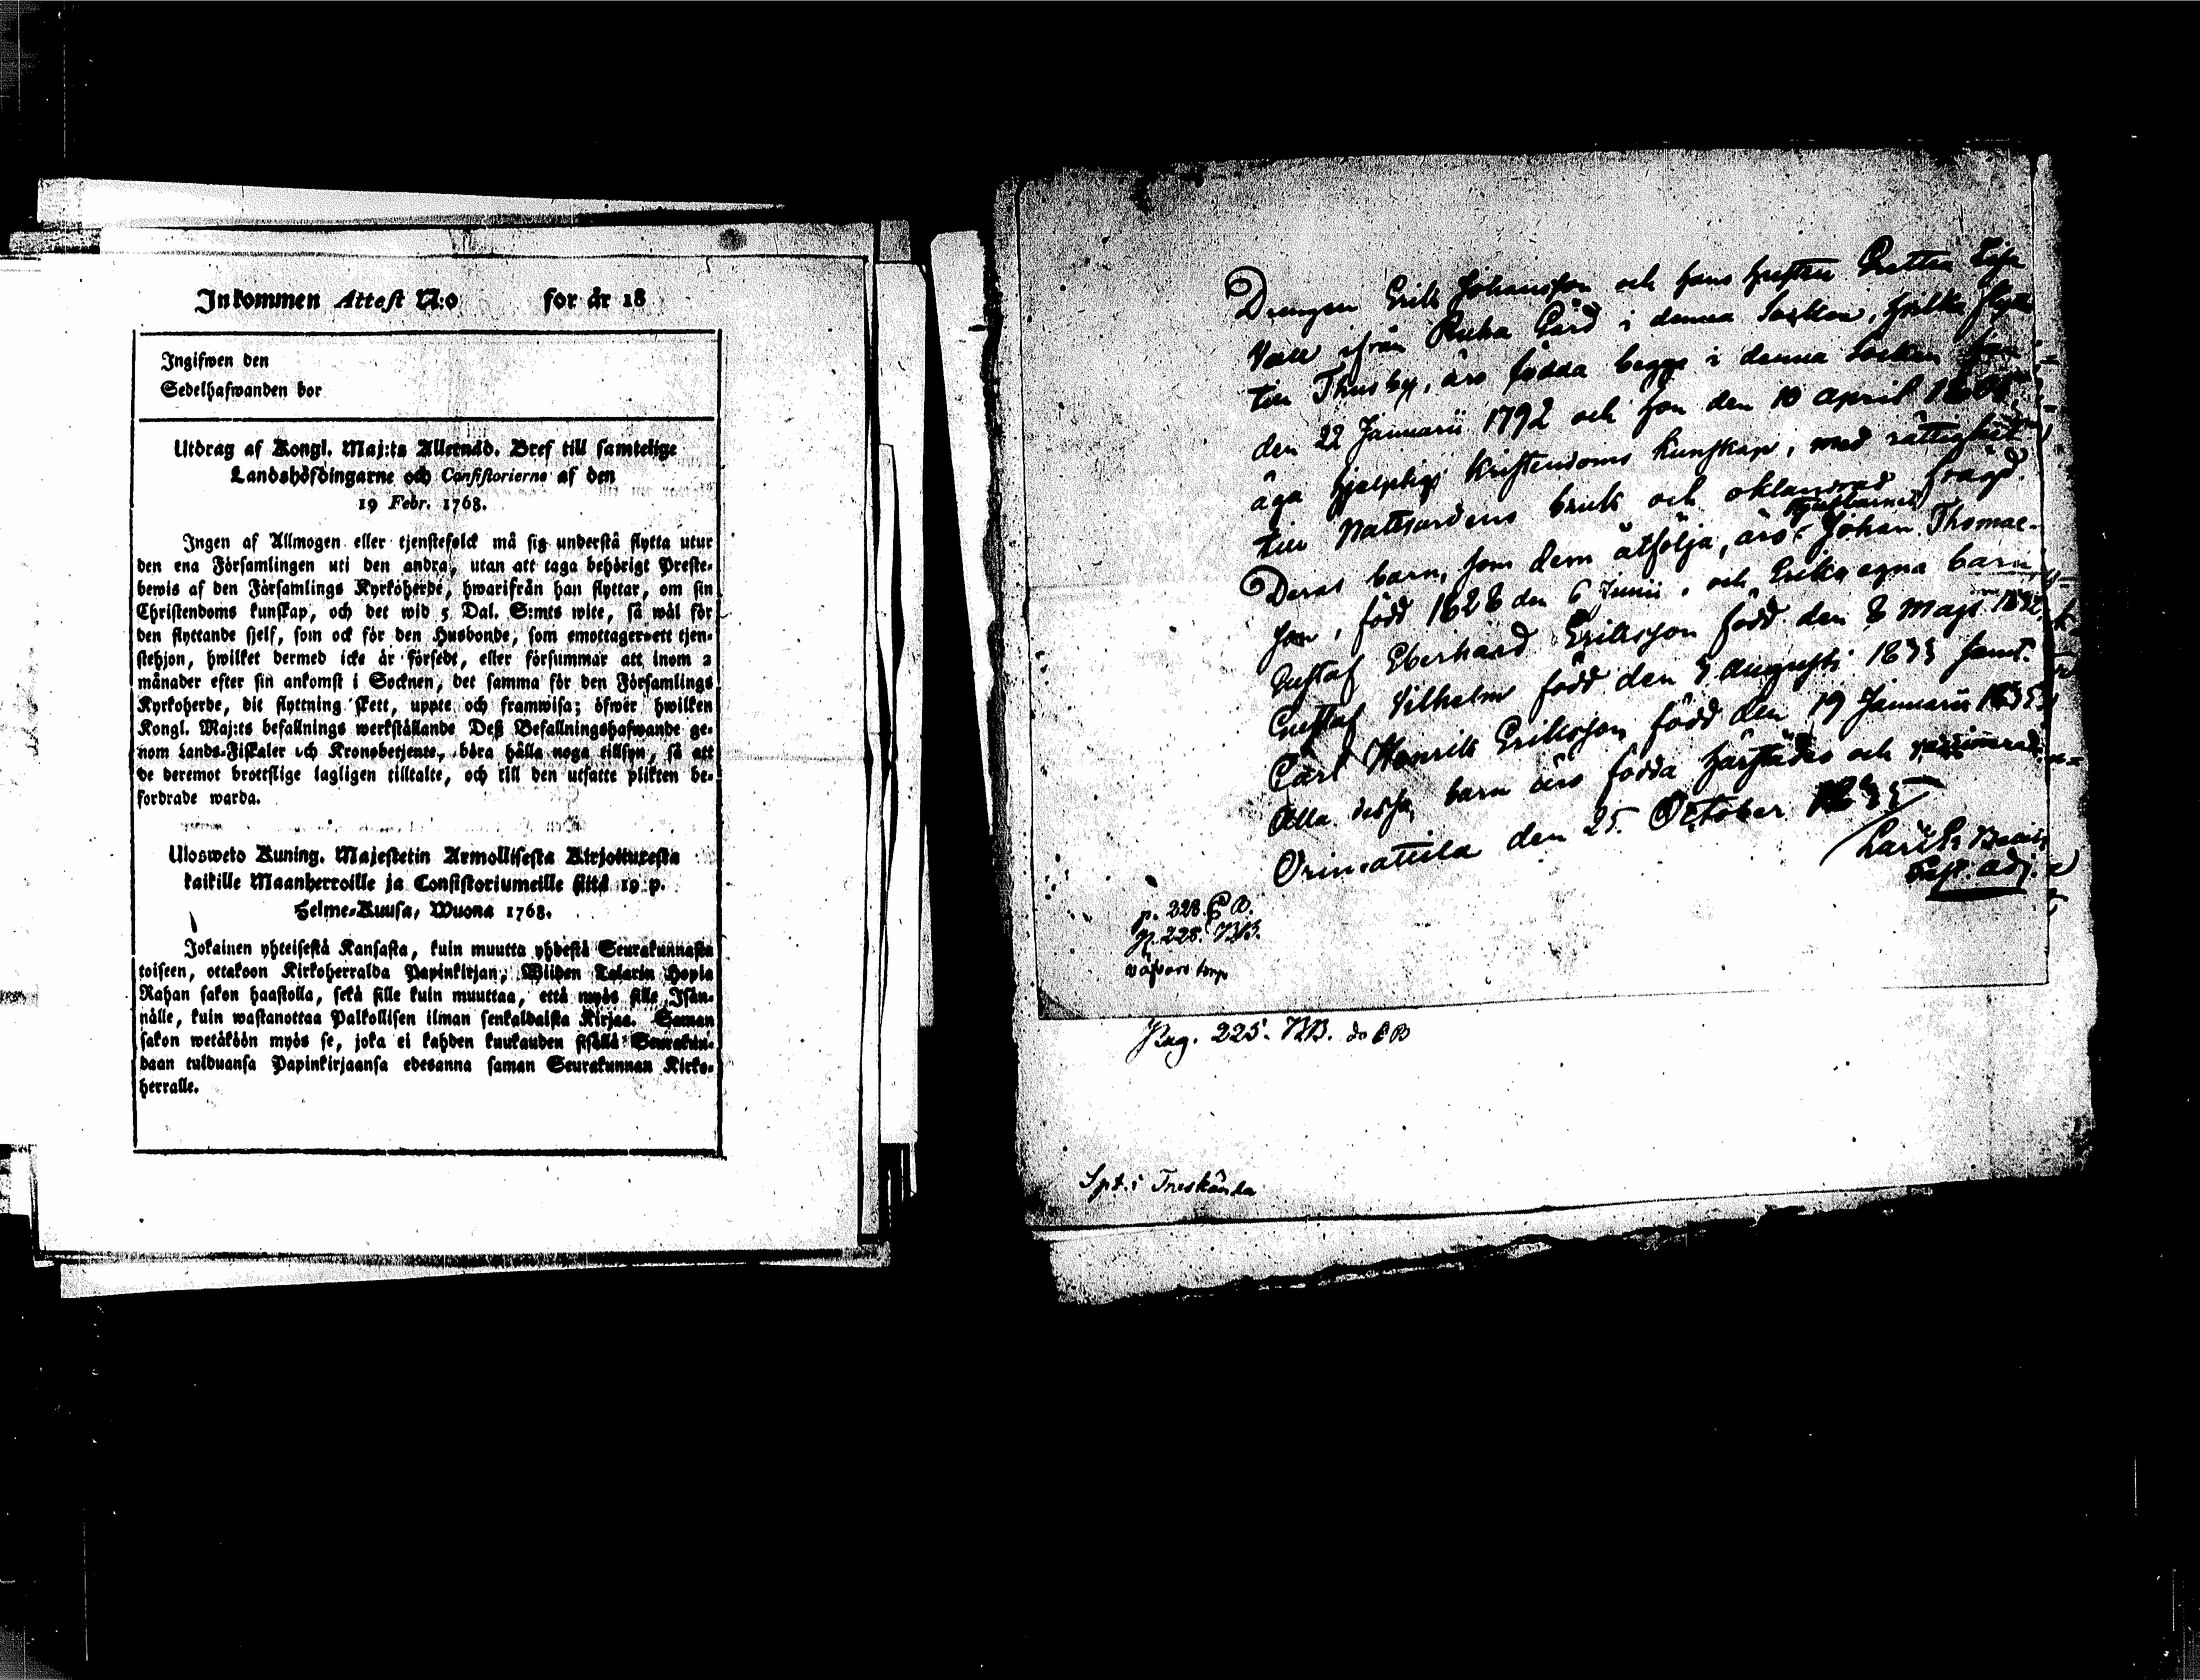 Inkommen Attest N:o for år 18
Ingifwen den
Sedelhafwanden bor
Utdrag af Kongl. Maj:ts Allernåd. Bref till samtelige
Landshöfdingarne och Consistorierne af den
19 Febr. 1768.
Ingen af Allmogen eller tjenstefolck må sig understå flytta utur
den ena Församlingen uti den andra, utan att taga behörigt Preste-
bewis af den Församlings Kyrkoherde, hwarifrån han flyttar, om sin
Christendoms kunskap, och det wid 5 Dal. S:mts wite, så wäl för
den flyttande sjelf, som ock för den Husbonde, som emottager ett tjen-
stehjon, hwilket dermed icke är försedt, eller försummar att inom 2
månader efter sin ankomst i Socknen, det samma för den Församlings
Kyrkoherde, dit flyttning skett, uppte och framwisa; öfwer hwilken
Kongl. Maj:ts befallnings werkställande Deß Befallningshafwande ge-
nom Lands-Fiskaler och Kronobetjente, böra hålla noga tillsyn, så att
de deremot brottslige lagligen tilltalte, och till den utsatte plikten be-
fordrade warda.
Ulosweto Kuning. Majestetin Armollisesta Kirjoituresta
kaikille Maanherroille ja Consistoriumeille siitä 19 p.
Helme-Kuusa, Wuona 1768.
Jokainen yhteisestä Kansasta, kuin muutta yhdestä Seurakunnasta
toiseen, ottakoon Kirkoherralda Papinkirjan, Wiiden Talarin Hopia
Rahan sakon haastolla, sekä sille kuin muuttaa, että myös sille Isän-
nälle, kuin wastanottaa Palkollisen ilman senkaldaista Kirjaa. Saman
sakon wetäköön myös se, joka ei kahden kuukauden sisällä Seurakun-
daan tulduansa Papinkirjaansa edesanna saman Seurakunnan Kirko-
herralle.
Drengen Erik Johansson och hans hustru Gretta Lisa
ifrån Ruha Gård i denna Socken, hvilka flytta
till Thusby, äro födda begge i denna Socken han
den 22 Januarii 1792 och hon den 10 April
äga hjelplig kristendoms kunskap, med rättighet
till Nattvardens bruk och oklandrad frägd.
Deras barn, som dem åtfölja, äro: Johan Thomas-
son, född 1828 den 6 Junii. och Eriks egna barn
Gustaf Eberhard Eriksson född den 8 Maji
Gustaf Vilhelm född den 9 Augusti 1833 samt
Carl Henrik Eriksson född den 19 Januarii 1835
Alla dessa barn äro födda härstädes och vaccinerade
Orimattila den 25. October 1835
p. 228. C B.
p. 228. BB.
Pag. 225. BB. do C B
Spt. i Träskända